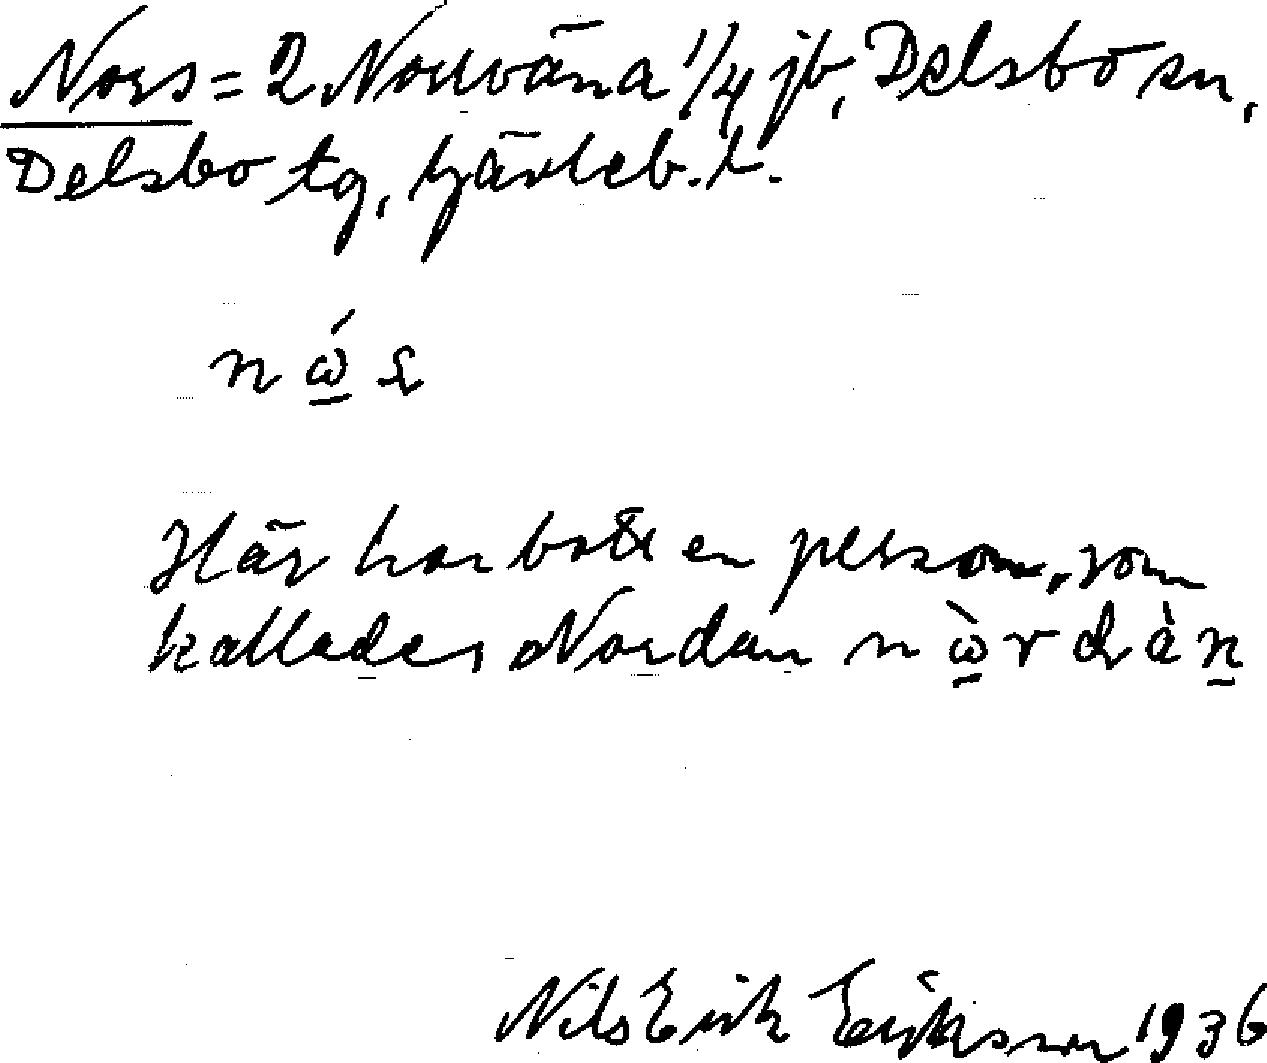 Nors = 2 Norrväna 1/4 jb, Delsbo sn,
Delsbo tg, Gävleb. l.
Här har bott en person, som
kallades Nordan
Nils Erik Eriksson 1936